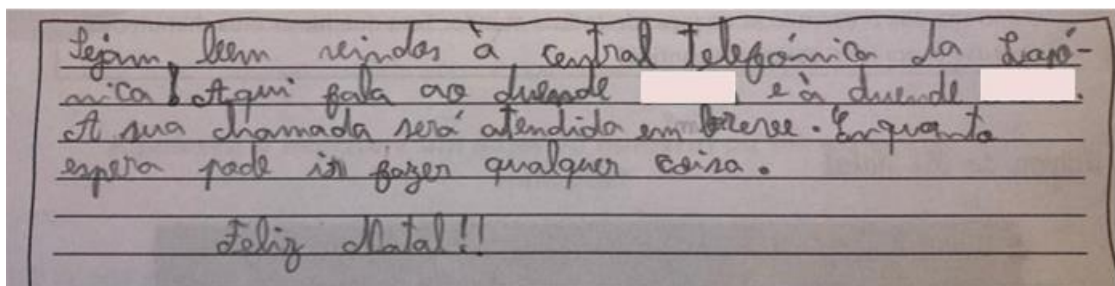 Sejam bem vindos à central telefónica da Lapó-
nica! Aqui fala ao duende e à duende .
A sua chamada será atendida em breve. Enquanto
espera pode ir fazer qualquer coisa.
Feliz Natal!!